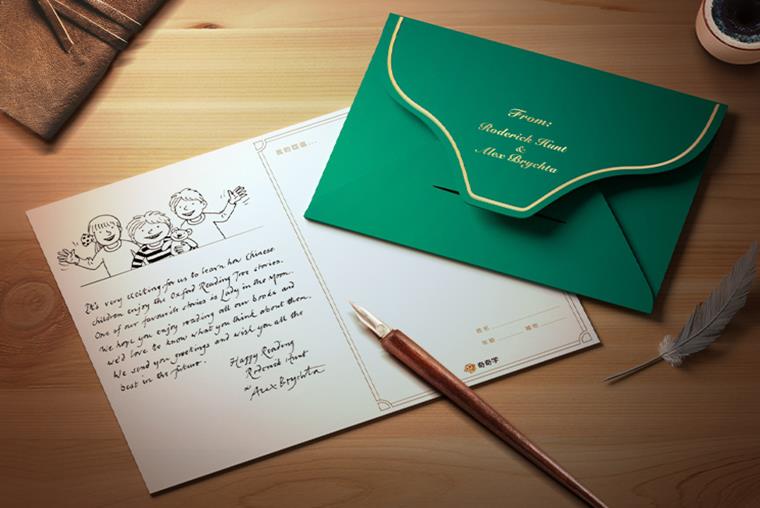 From:
Roderick Hunt
&
Alex Brychta
It's very exciting for us to learn how Chinese
children enjoy the Oxford Reading Tree stories.
One of our favourite stories is Lady in the Moon.
We hope you enjoy reading all our books and
we'd love to know what you think about them.
We send you greetings and wish you all the
best in the future.
Happy Reading
Roderick Hunt
Alex Brychta
我的回信...
姓名
年龄
奇奇学